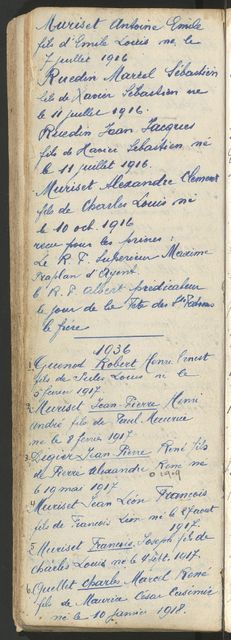 Muriset Antoine Emile
fils d'Emile Louis né le
7 juillet 1916
Ruedin Marcel Sébastien
fils de Xavier Sébastien né
le 11 juillet 1916.
Ruedin Jean Jacques
fils de Xavier Sébastien né
le 11 juillet 1916.
Muriset Alexandre Clément
fils de Charles Louis né
le 10 oct. 1916
reçu pour les prières :
Le R. P. Supérieur Maxime
d'Ayent
le R. P. Albert prédicateur
le jour de la Fête des Sts Patrons
le frère
1936
1. Robert Henri Ernest
fils de Louis né le
février 1917.
2. Muriset Jean-Pierre Henri
André fils de Paul Maurice
né le 8 févr. 1917
3. Digier Jean Pierre René fils
de Pierre Alexandre René né
le 19 mai 1917
4. Muriset Jean Léon François
fils de François Léon né le 27 août
1917.
5. Muriset François Joseph fils de
Charles Louis né le 4 sept. 1917.
6. Quellet Charles Marcel René
fils de Maurice César Casimir
né le 10 janvier 1918.